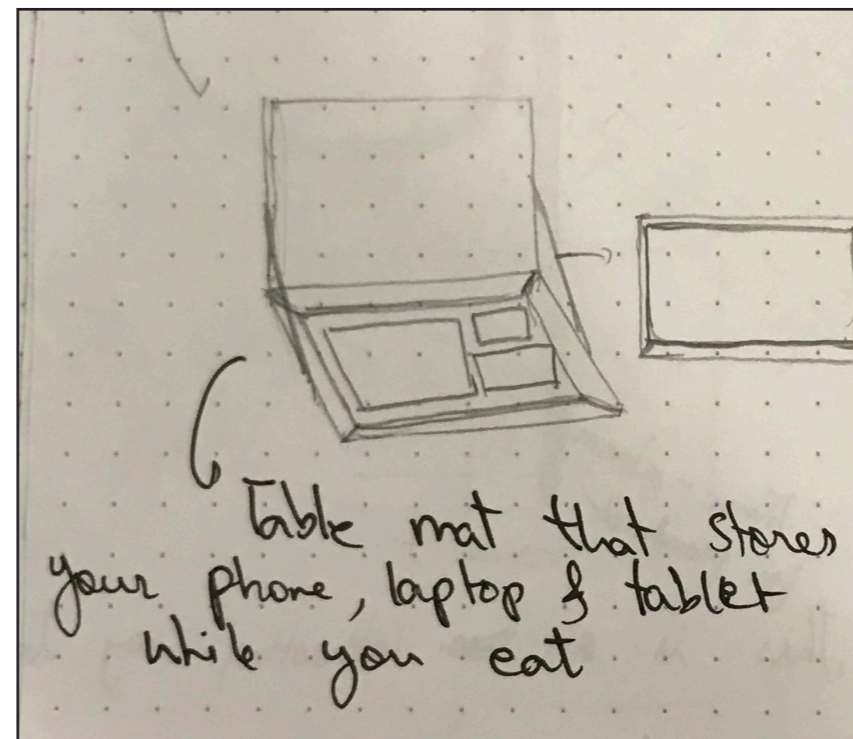 Table mat that stores
your phone, laptop & tablet
while you eat